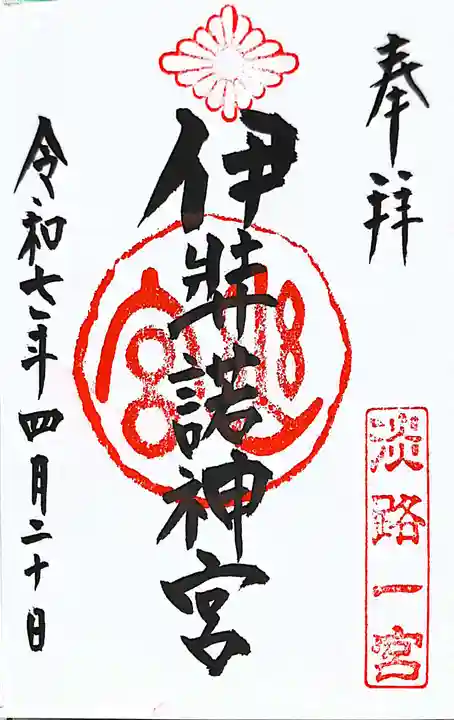 奉拝
淡路一宮
伊弉諾神宮
令和七年四月二十日